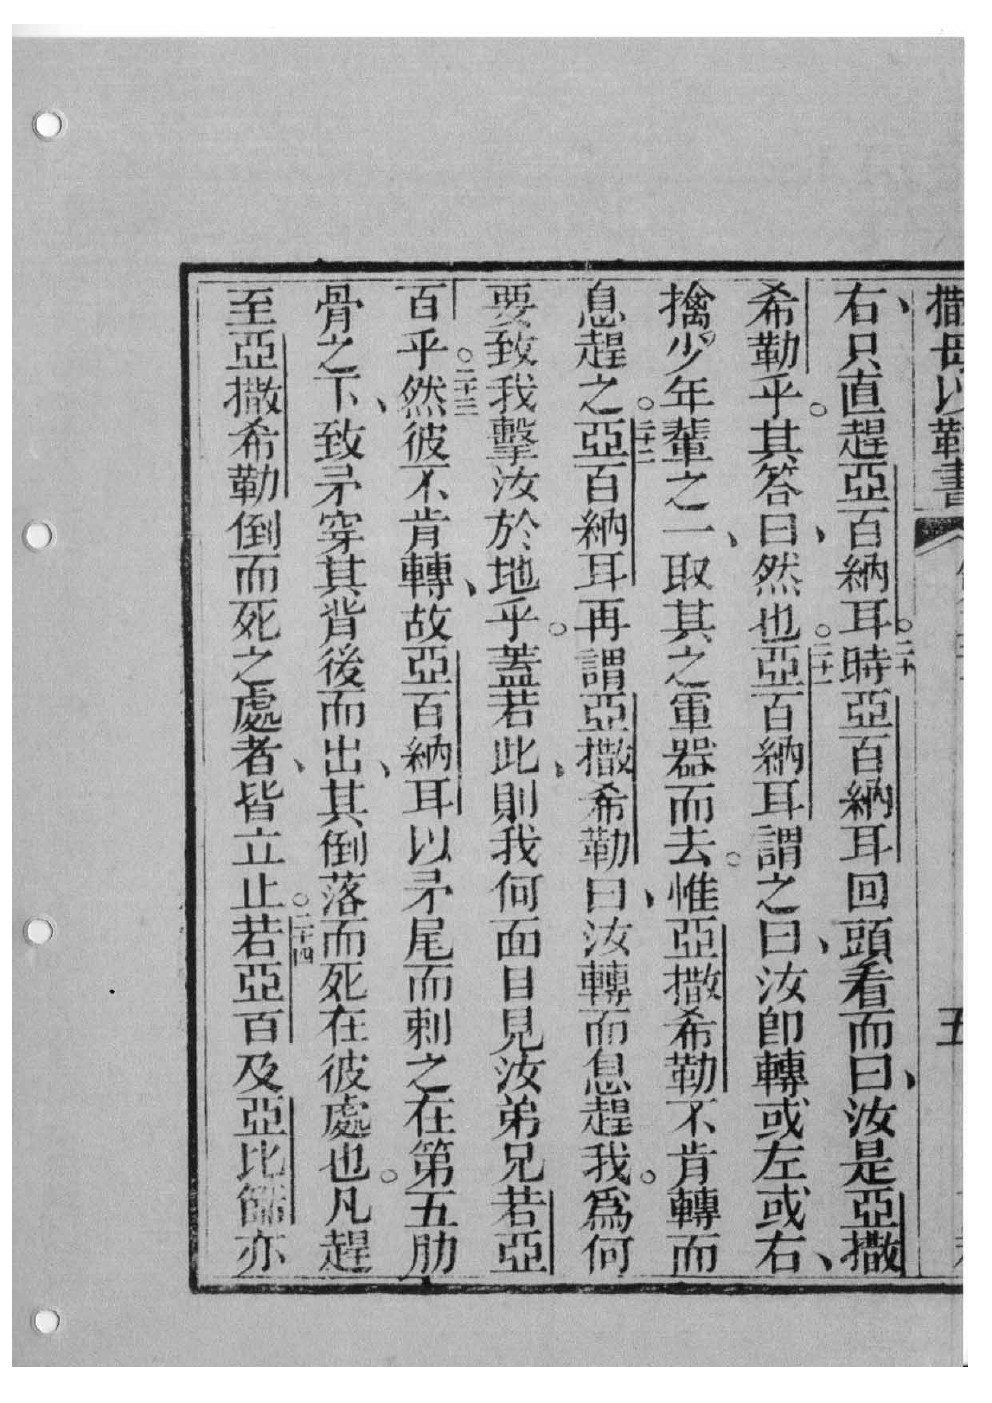 撒母以勒書 五
右只直趕亞百納耳。二十時亞百納耳回頭看而曰、汝是亞撒
希勒乎。其答曰、然也。二十一亞百納耳謂之曰、汝即轉或左或右、
擒少年輩之一、取其之軍器而去。惟亞撒希勒不肯轉而
息趕之。二十二亞百納耳再謂亞撒希勒曰、汝轉而息趕我。爲何
要致我擊汝於地乎。蓋若此、則我何面目見汝弟兄若亞
百乎。二十三然彼不肯轉、故亞百納耳以矛尾而刺之在第五肋
骨之下、致矛穿其背後而出、其倒落而死在彼處也。凡趕
至亞撒希勒倒而死之處者、皆立止。二十四若亞百及亞比篩亦